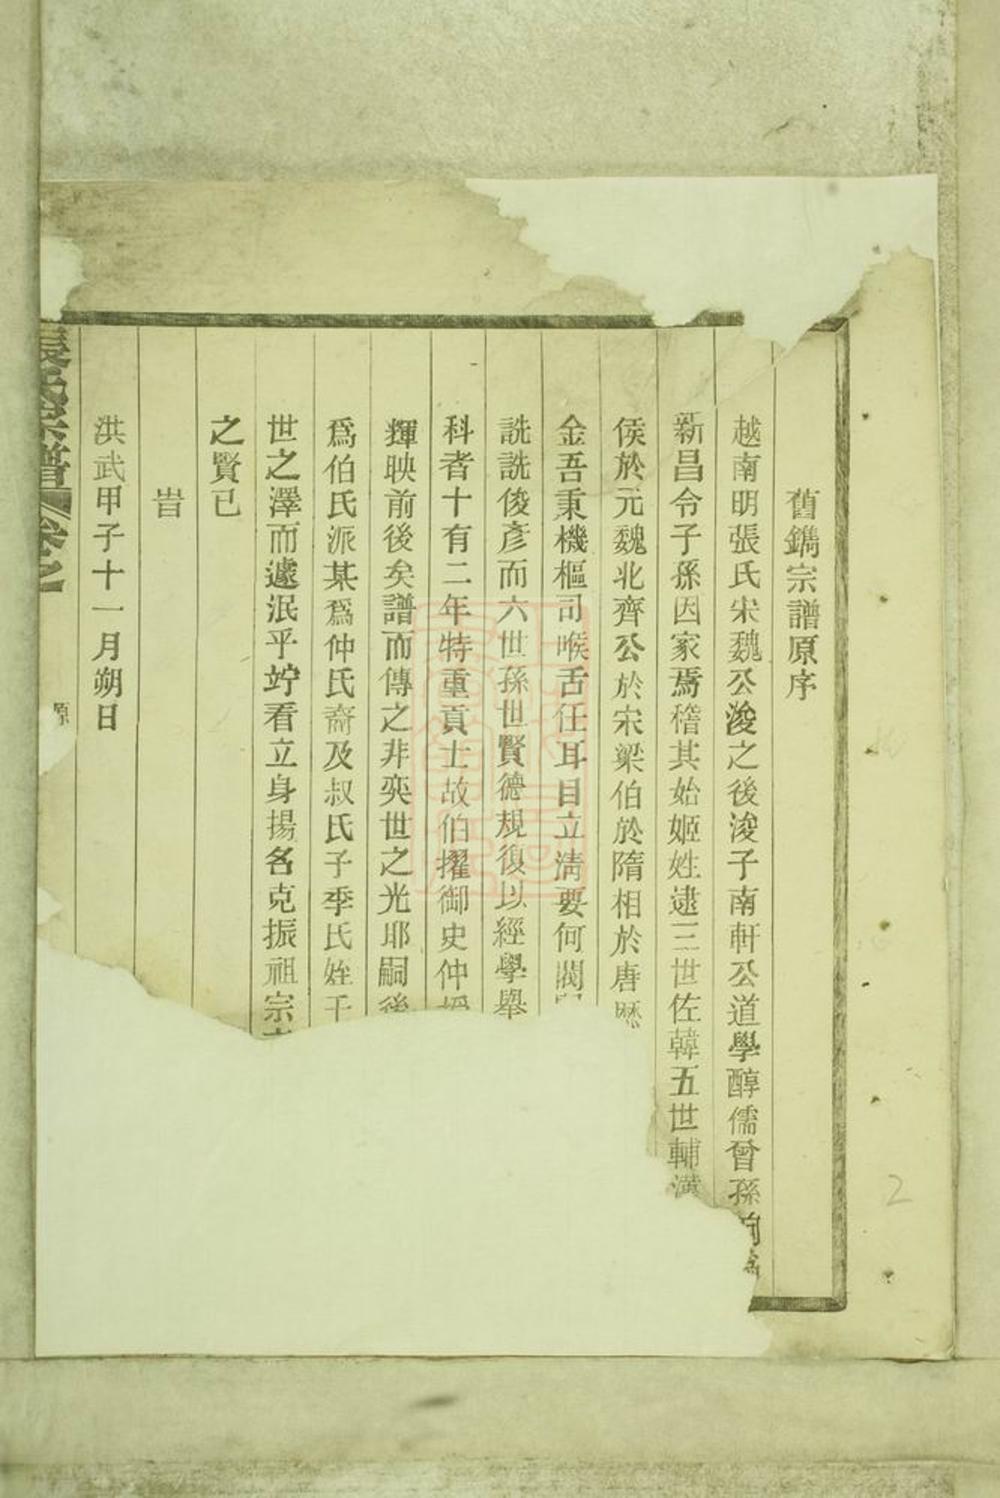 舊鐫宗譜原序
越南明張氏宋魏公浚之後浚子南軒公道學醇儒曾孫
新昌令子孫因家焉稽其始姬姓逮三世佐韓五世輔漢
侯於元魏北齊公於宋梁伯於隋相於唐歷
金吾秉機樞司喉舌任耳目立淸要何閥
詵詵俊彥而六世孫世賢德規復以經學舉
科者十有二年特重貢士故伯擢御史仲授
輝映前後矣譜而傳之非奕世之光耶嗣後
爲伯氏派某爲仲氏裔及叔氏子季氏姪
世之澤而遽泯乎竚看立身揚名克振祖宗
之賢已
旹
洪武甲子十一月朔日
張氏宗譜 卷之
原